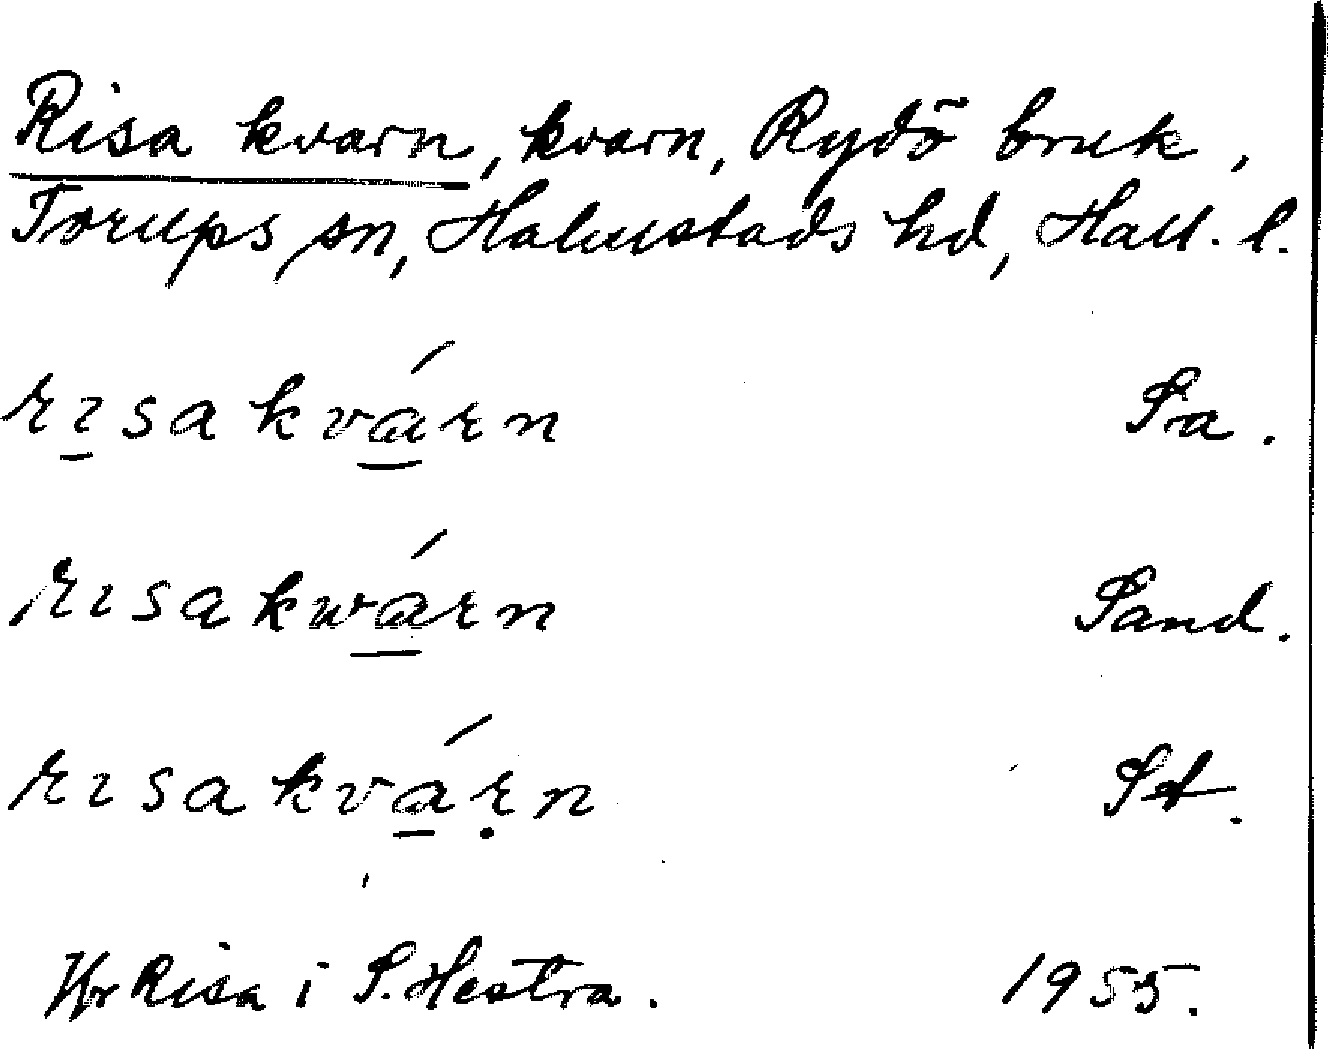 Risa kvarn, kvarn, Rydö bruk,
Torups sn, Halmstads hd, Hall. l.
rı̲sakvá̲rn Sa.
rısakwá̲rn Sand.
rısakvá̲ṛn St.
Jfr Risa i S. Hestra. 1955.